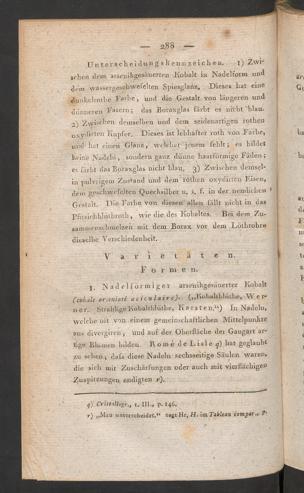 — 288 —
Unterscheidungskennzeichen. 1) Zwi-
schen dem arsenikgesäuerten Kobalt in Nadelform und
dem wassergeschwefelten Spiesglanz. Dieses hat eine
dunkelrothe Farbe, und die Gestalt von längeren und
dünneren Fasern; das Boraxglas färbt es nicht blau.
2) Zwischen demselben und dem seidenartigen rothen
oxydirten Kupfer. Dieses ist lebhafter roth von Farbe,
und hat einen Glanz, welcher jenem fehlt; es bildet
keine Nadeln, sondern ganz dünne haarförmige Fäden;
es färbt das Boraxglas nicht blau. 3) Zwischen demsel-
in pulvrigem Zustand und dem rothen oxydirten Eisen,
dem geschwefelten Quecksilber u. s. f. in der nemlichen
Gestalt. Die Farbe von diesen allen fällt nicht in das
Pfirsichblüthroth, wie die des Kobaltes. Bei dem Zu-
sammenschmelzen mit dem Borax vor dem Löthrohre
dieselbe Verschiedenheit.
Varietäten.
Formen.
1. Nadelförmiger arsenikgesäuerter Kobalt
(cobalt arseniaté aciculaire). („Kobaltblüthe, Wer-
ner. Strahlige Kobaltblüthe, Karsten.“) In Nadeln,
welche oft von einem gemeinschaftlichen Mittelpunkte
aus divergiren, und auf der Oberfläche der Gangart ar-
tige Blumen bilden. Romé de Lisle q) hat geglaubt
zu sehen, dass diese Nadeln sechsseitige Säulen waren,
die sich mit Zuschärfungen oder auch mit vierflächigen
Zuspitzungen endigten r).
q) Cristallogr., t. III., p. 146.
r) „Man unterscheidet.“ sagt Hr. H. im Tableau compar., p.